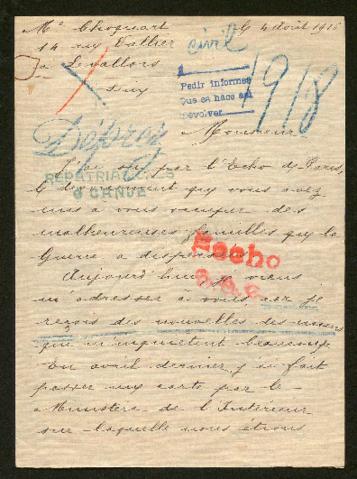 Mr Choquart le 4 août 1915
14 rue Vallier civil
à Levallois
Pedir informes
Que se hace asi
Devolver
1918
Monsieur
J'ai par l'Echo de Paris,
REPATRIACIONES
O CANJE
que vous avez
à vous occuper des
malheureuses familles que la
Guerre a dispersées
Hecho
Aujourd'hui je viens
m'adresser à vous car je
reçois des nouvelles des miens
qui m'inquiètent beaucoup
En avril dernier j'ai fait
passer une carte par le
Ministère de l'Intérieur
sur laquelle nous étions